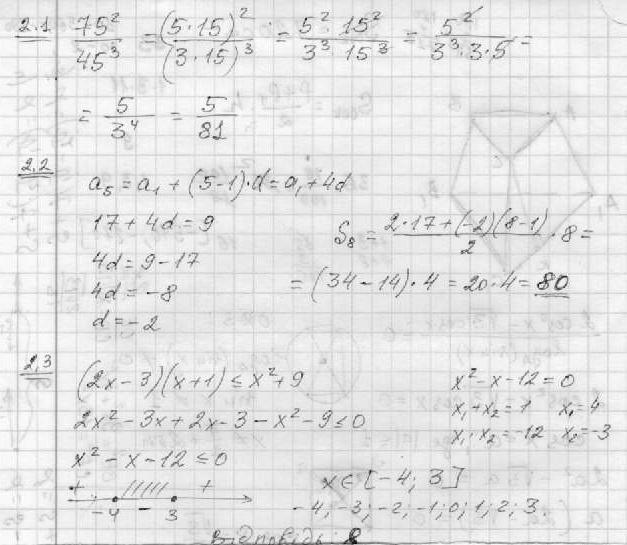 2.1 75²/45³ = (5·15)²/(3·15)³ = 5² 15²/3³ 15³ = 5²/3³·3·5 =
= 5/3⁴ = 5/81
2.2
a₅ = a₁ + (5-1)·d = a₁ + 4d
17 + 4d = 9
4d = 9 - 17
4d = -8
d = -2
S₈ = 2·17+(-2)(8-1)/2 · 8 =
= (34 - 14)·4 = 20·4 = 80
2,3
(2x-3)(x+1) ≤ x²+9
2x² - 3x + 2x - 3 - x² - 9 ≤ 0
x² - x - 12 ≤ 0
+ +
-4 - 3
x² - x - 12 = 0
x₁+x₂ = 1 x₁ = 4
x₁·x₂ = -12 x₂ = -3
x ∈ [-4; 3]
-4; -3; -2; -1; 0; 1; 2; 3.
Відповідь: 8